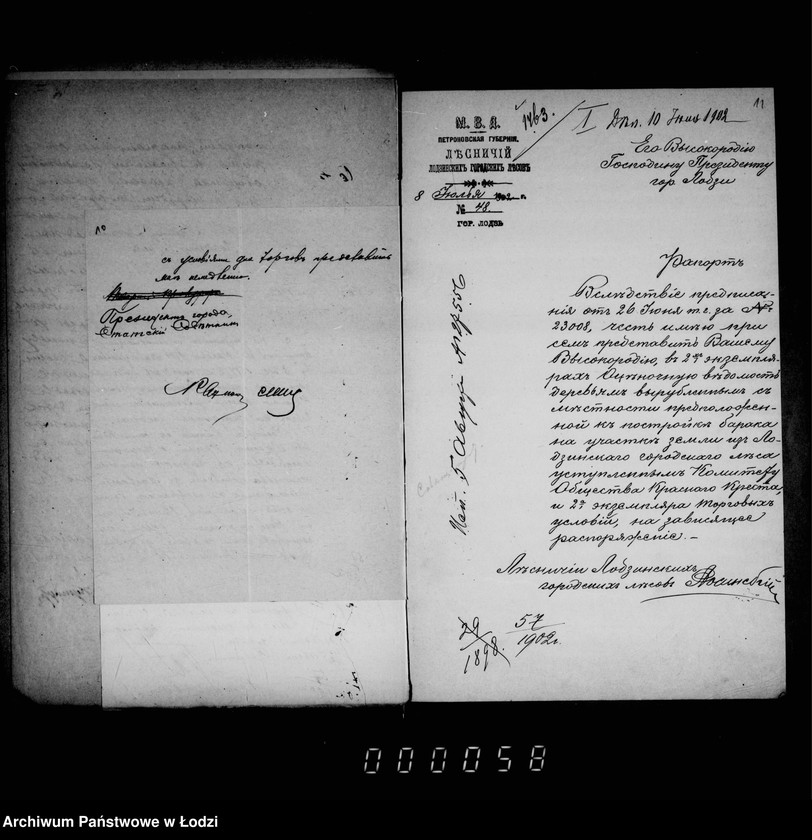 съ условіями для торговъ представить
мнѣ немедленно.
Президентъ города,
Статскій Совѣтникъ
11
М. В. Д.
ПЕТРОКОВСКАЯ ГУБЕРНІЯ.
ЛѢСНИЧІЙ
ЛОДЗИНСКИХЪ ГОРОДСКИХЪ ЛѢСОВЪ
8 Іюля 1902 г.
№ 48.
ГОР. ЛОДЗЬ
1763.
I Деп. 10 Іюля 1902
Его Высокородію
Господину Президенту
гор. Лодзи
Рапортъ
Вслѣдствіе предписа-
нія отъ 26 Іюня т. г. за №
23008, честь имѣю при
семъ представить Вашему
Высокородію, въ 2хъ экземпля-
рахъ Оцѣночную вѣдомость
деревьямъ вырубленнымъ съ
мѣстности предположен-
ной къ постройкѣ барака
на участкѣ земли изъ Ло-
дзинскаго городскаго лѣса
уступленнымъ Комитету
Общества Краснаго Креста,
и 2 экземпляра торговыхъ
условій, на зависящее
распоряженіе. –
Лѣсничій Лодзинскихъ
городскихъ лѣсовъ
Исп. 5 Августа №
29/1898
57/1902 г.
000058
Archiwum Państwowe w Łodzi